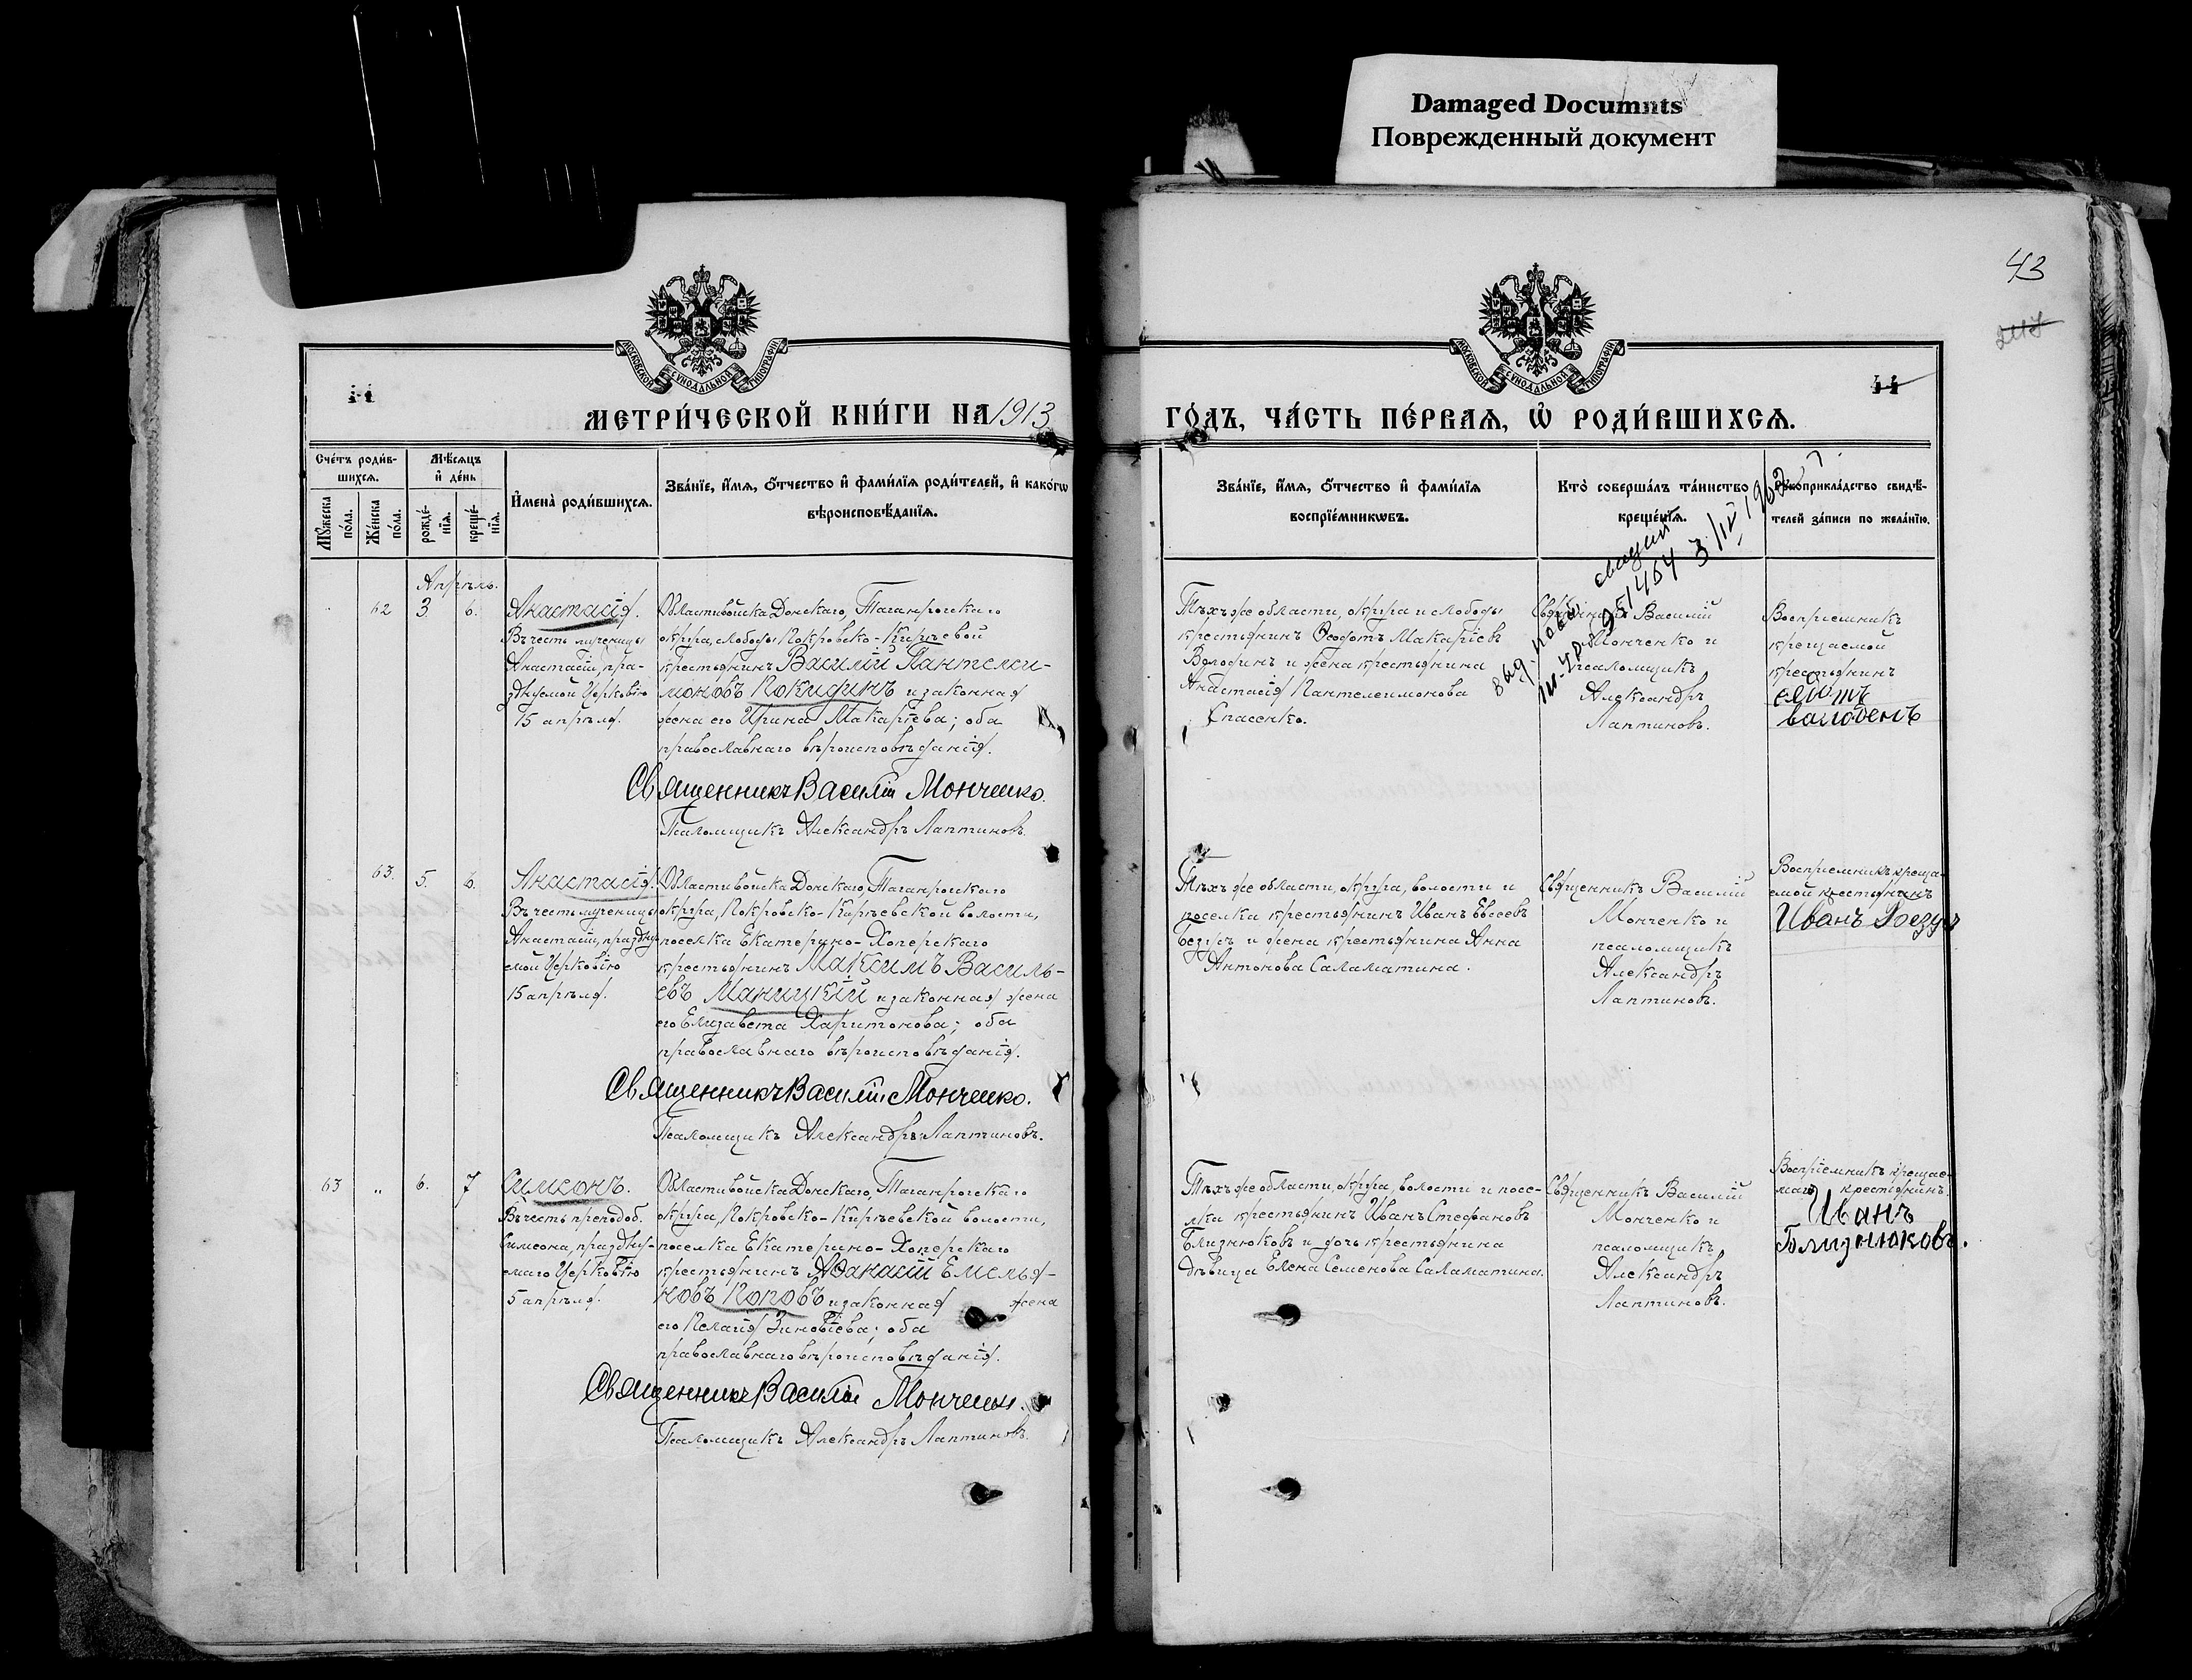 Damaged Documnts
Поврежденный документ
43
МОСКОВСКОЙ СѴНОДАЛЬНОЙ ТИПОГРАФІИ
МОСКОВСКОЙ СѴНОДАЛЬНОЙ ТИПОГРАФІИ
МЕТРИ́ЧЕСКОЙ КНИ́ГИ НА 1913
ГО́ДЪ, ЧА́СТЬ ПЕ́РВАѦ, Ѡ҆ РОДИ́ВШИХСѦ.
Сче́тъ роди́в-
шихсѧ.
Мꙋ́жеска по́ла.
Же́нска по́ла.
Мѣ́сѧцъ
и҆ де́нь
рожде́-
нїѧ.
креще́-
нїѧ.
И҆мена̀ роди́вшихсѧ.
Зва́нїе, и҆́мѧ, ѻ҆́тчество и҆ фами́лїѧ роди́телей, и҆ како́гѡ
вѣроисповѣ́данїѧ.
Зва́нїе, и҆́мѧ, ѻ҆́тчество и҆ фами́лїѧ
воспрїе́мникѡвъ.
Кто̀ соверша́лъ та́инство
креще́нїѧ.
Рꙋкоприкла́дство свидѣ́-
телей за́писи по жела́нїю.
Апрѣль.
62
3.
6.
Анастасія.
Въ честь мученицы
Анастасіи, пра-
зднуемой Церковію
15 апрѣля.
Области войска Донскаго, Таганрогскаго
округа, слободы Покровско-Кирѣевой
крестьянинъ Василій Пантелеи-
моновъ Покидинъ и законная
жена его Ирина Макаріева; оба
православнаго вѣроисповѣданія.
Священникъ Василій Монченко.
Псаломщикъ Александръ Лаптиновъ.
Тѣхъ же области, округа и слободы
крестьянинъ Ѳеодотъ Макаріевъ
Володинъ и жена крестьянина
Анастасія Пантелеимонова
Спасенко.
Священникъ Василій
Монченко и
псаломщикъ
Александръ
Лаптиновъ.
Воспріемникъ
крещаемой
крестьянинъ
63.
5.
6.
Анастасія.
Въ честь мученицы
Анастасіи, праздну-
емой Церковію
15 апрѣля.
Области войска Донскаго, Таганрогскаго
округа, Покровско-Кирѣевской волости,
поселка Екатерино-Хоперскаго
крестьянинъ Максимъ Василь-
евъ Маницкій и законная жена
его Елизавета Харитонова; оба
православнаго вѣроисповѣданія.
Священникъ Василій Монченко.
Псаломщикъ Александръ Лаптиновъ.
Тѣхъ же области, округа, волости и
поселка крестьянинъ Иванъ Евсеевъ
и жена крестьянина Анна
Антонова Саламатина.
Священникъ Василій
Монченко и
псаломщикъ
Александръ
Лаптиновъ.
Воспріемникъ креща-
емой крестьянинъ
Иванъ
63
"
6.
7
Симеонъ.
Въ честь преподоб.
Симеона, праздну-
емаго Церковію
5 апрѣля.
Области войска Донскаго, Таганрогскаго
округа, Покровско-Кирѣевской волости,
поселка Екатерино-Хоперскаго
крестьянинъ Аѳанасій Емелья-
новъ Поповъ и законная жена
его Пелагія Зиновіева; оба
православнаго вѣроисповѣданія.
Священникъ Василій Монченко.
Псаломщикъ Александръ Лаптиновъ.
Тѣхъ же области, округа, волости и посе-
лка крестьянинъ Иванъ Стефановъ
Близнюковъ и дочь крестьянина
дѣвица Елена Семенова Саламатина.
Священникъ Василій
Монченко и
псаломщикъ
Александръ
Лаптиновъ.
Воспріемникъ крещае-
маго крестьянинъ
Иванъ
Близнюковъ.